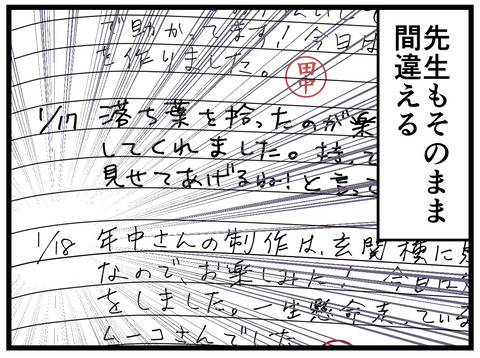 先生もそのまま
間違える
で助かってます！今日は
を作りました。
田中
1/17 落ち葉を拾ったのが楽
してくれました。持って
見せてあげるね！と言って
1/18 年中さんの制作は、玄関横に
なので、お楽しみに！今日は
をしました。一生懸命走っている
ムーコさんでした